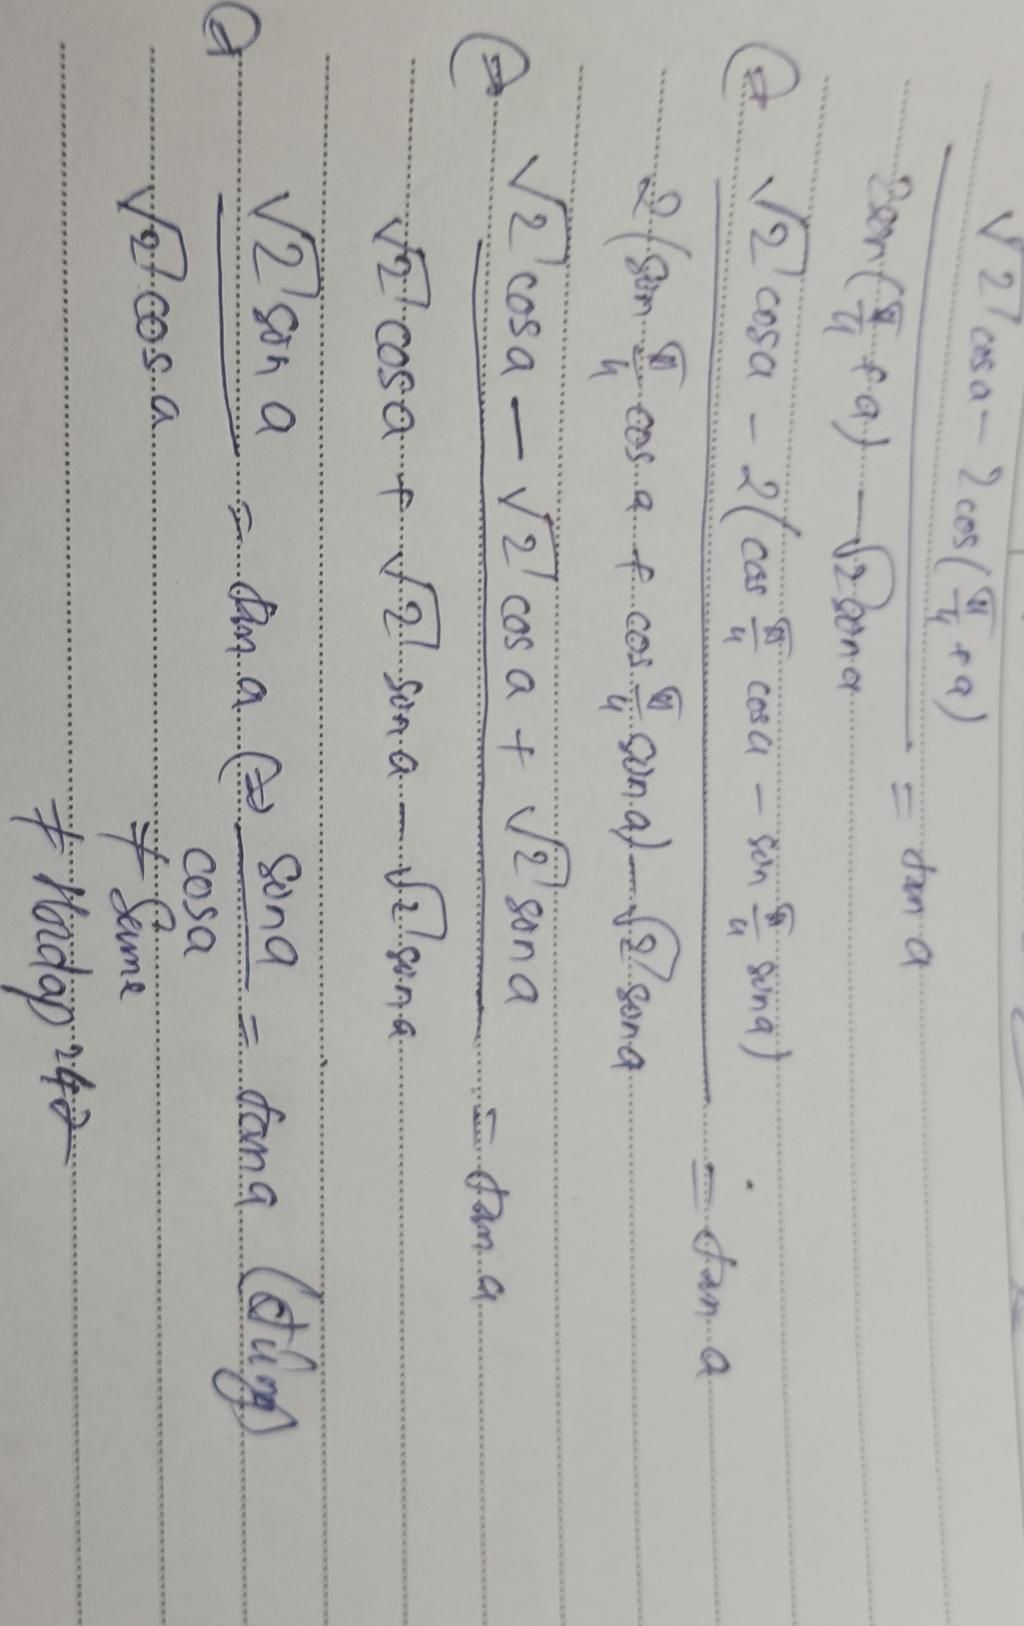 √2 cos a - 2cos(π/4 + a)
2sin(π/4 + a) - √2 sin a = tan a
⇔ √2 cos a - 2(cos π/4 cos a - sin π/4 sin a)
2(sin π/4 cos a + cos π/4 sin a) - √2 sin a = tan a
⇔ √2 cos a - √2 cos a + √2 sin a
√2 cos a + √2 sin a - √2 sin a = tan a
⇔ √2 sin a
√2 cos a = tan a ⇔ sin a
cos a = tan a (đúng)